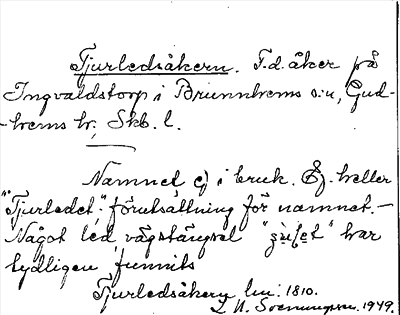 Tjurledsåkern. F.d. åker på
Ingvaldstorp i Brunnhems s:n, Gud-
-hems hr; Skb. l.
Namnet ej i bruk. Ej heller
"Tjurledet": förutsättning för namnet.-
Något led, vägstängsel "gri̯et" har
tydligen funnits
Tjurledsåkern lm: 1810.
L. N. Svenungsson. 1949.